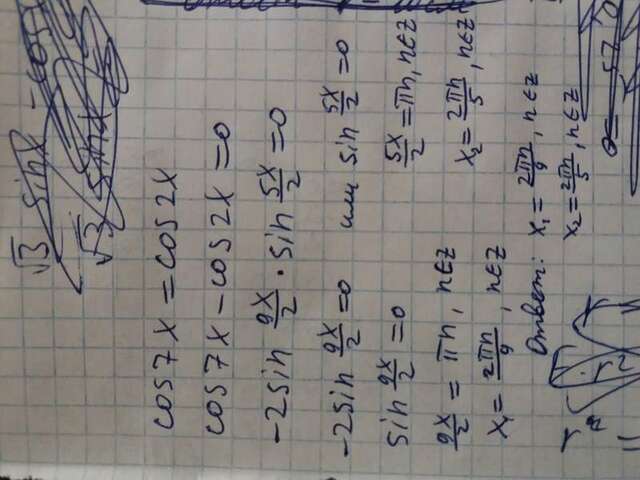 √3 sinx - cosx
√3 sinx
cos7x = cos2x
cos7x - cos2x = 0
-2sin 9x/2 · sin 5x/2 = 0
-2sin 9x/2 = 0 или sin 5x/2 = 0
sin 9x/2 = 0 5x/2 = πn, n∈Z
9x/2 = πn, n∈Z x₂ = 2πn/5, n∈Z
x₁ = 2πn/9, n∈Z
Ответ: x₁ = 2πn/9, n∈Z
x₂ = 2πn/5, n∈Z